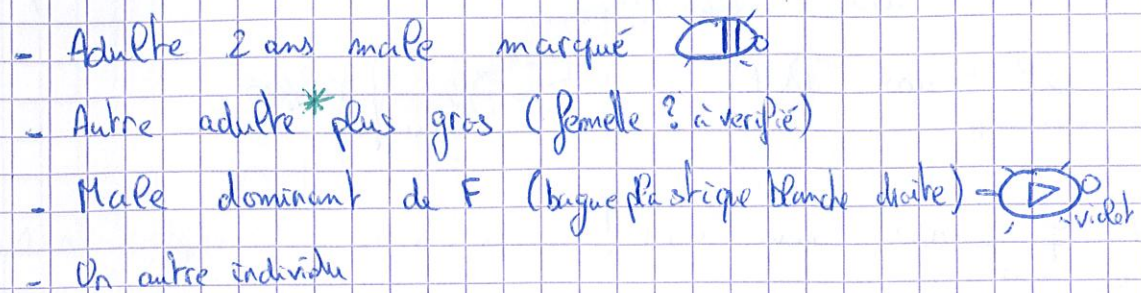 - Adulte 2 ans male marqué
- Autre adulte * plus gros (femelle ? à verifié)
- Male dominant de F (bague plastique blanche droite) -
violet
- Un autre individu